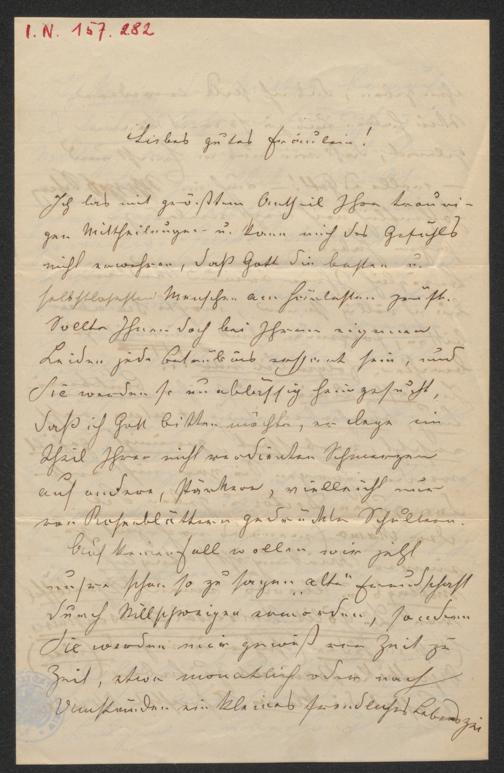 I. N. 157.282
Liebes gutes Fräulein!
Ich las mit größtem Antheil Ihre trauri-
gen Mittheilungen u. kann mich des Gefühls
nicht erwehren, daß Gott die besten u.
selbstlosesten Menschen am häufigsten prüft.
Sollte Ihnen doch bei Ihrem eigenen
Leiden jede erspart sein, und
Sie werden so unablässig heimgesucht,
daß ich Gott bitten möchte, er lege ein
Theil Ihrer nicht verdienten Schmerzen
auf andere, stärkere, vielleicht nur
von Rosenblättern gedrückte Schultern.
Auf keinen Fall wollen wir jetzt
unsre schon so zu sagen alte Freundschaft
durch Stillschweigen ermorden, sondern
Sie werden mir gewiß von Zeit zu
Zeit, etwa monatlich oder nach
Umständen ein kleines freundliches Lebenszei